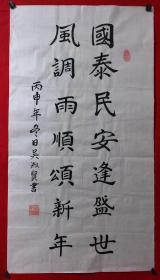 國泰民安逢盛世
風調雨順頌新年
丙申年冬日吳淑賢書